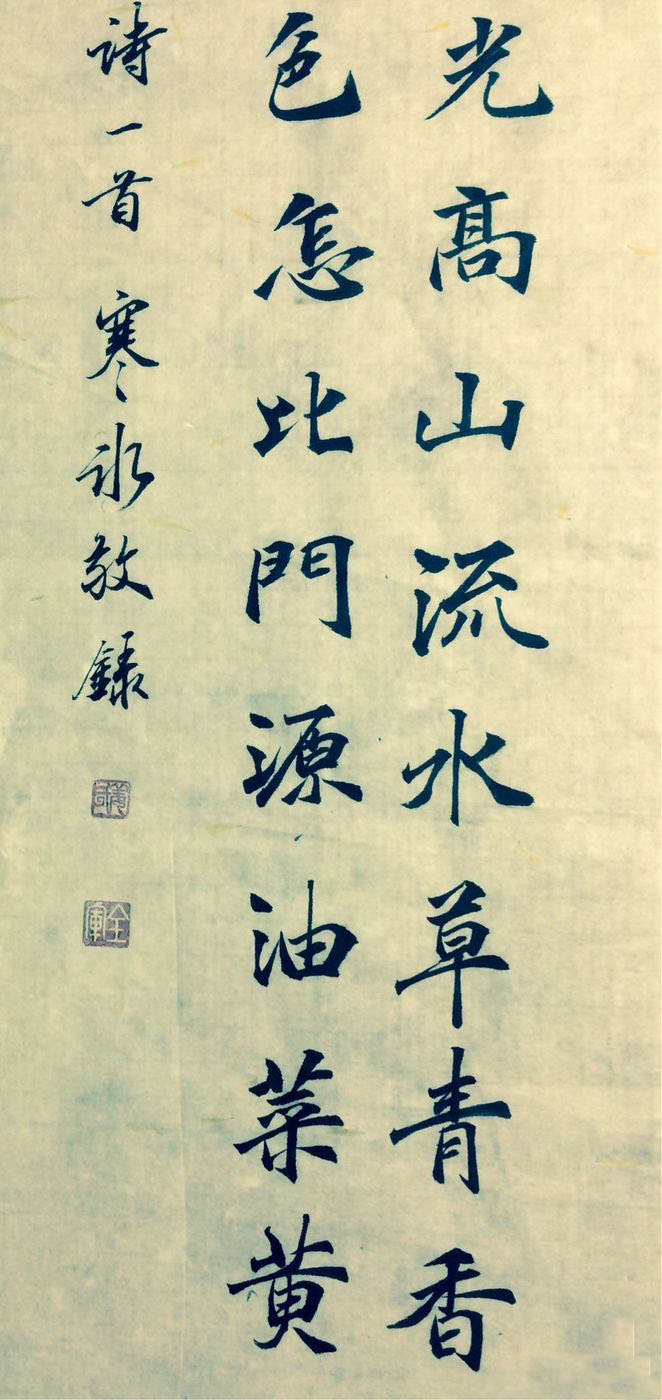 光高山流水草青香
色怎比門源油菜黄
詩一首 寒冰敬録